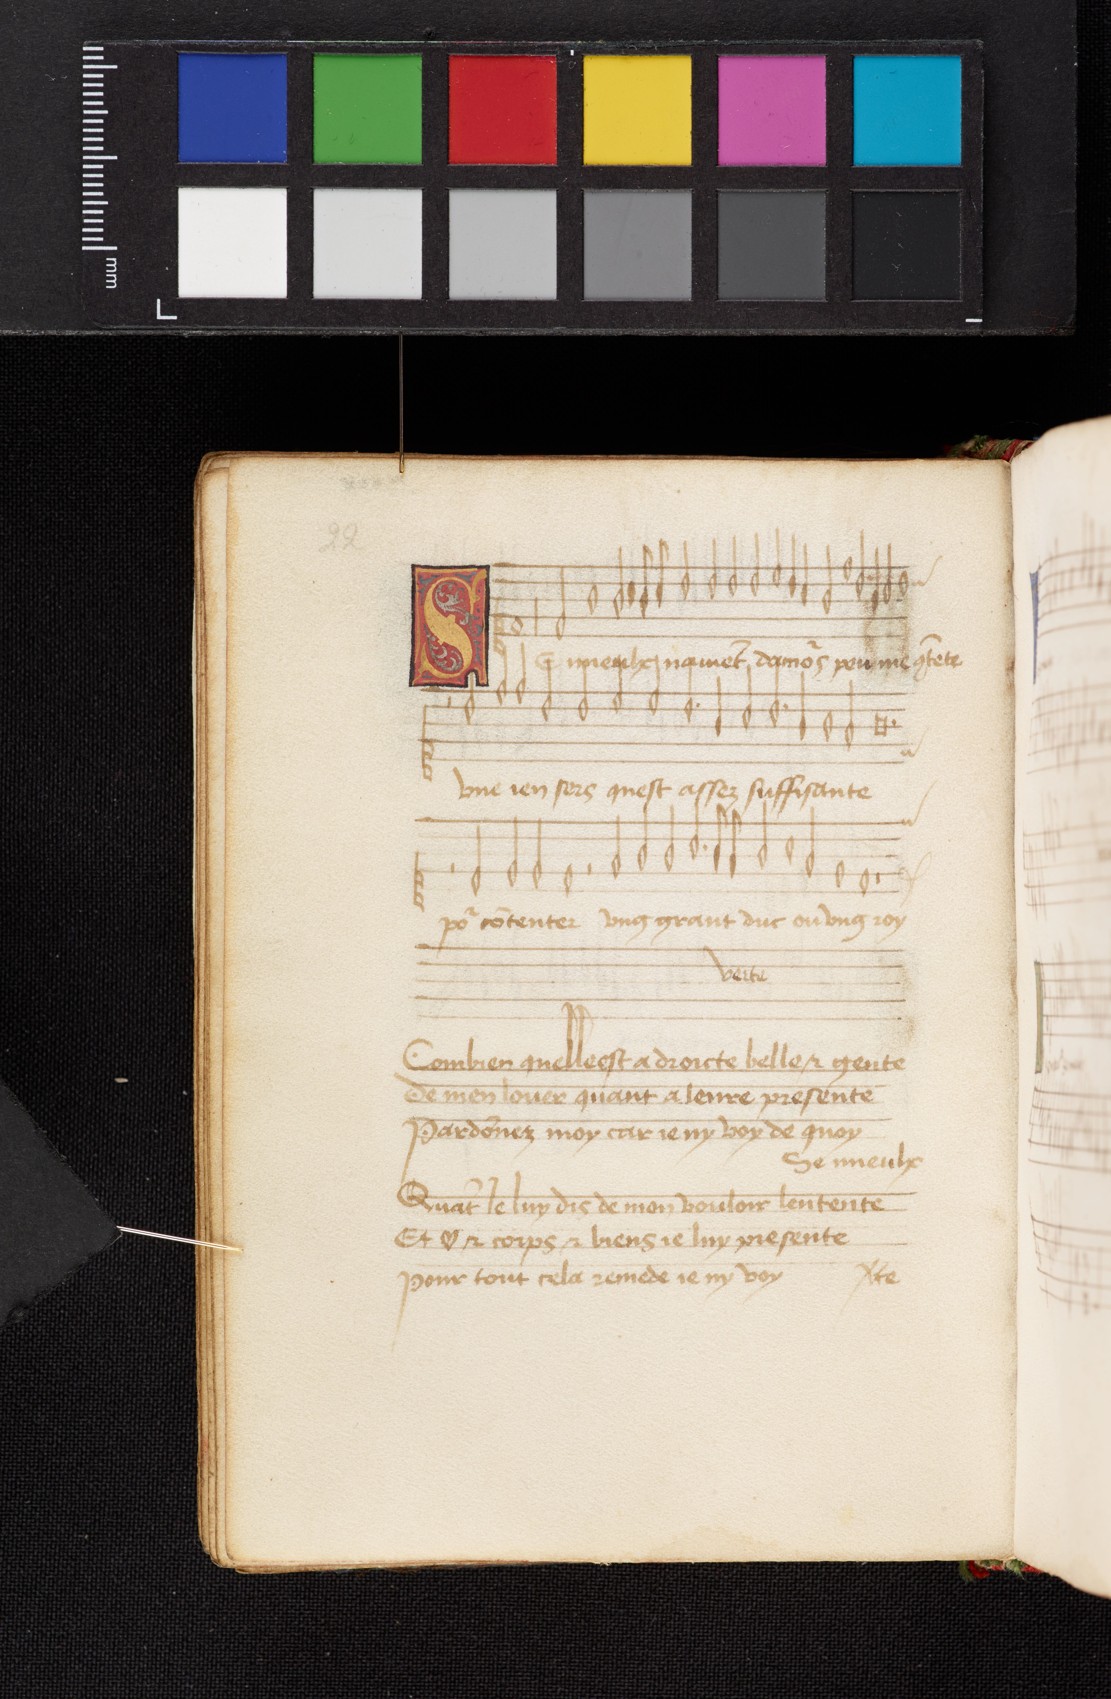 mm
22
SE mieulx ne vient damōs peu me cōtēte
vne ien sers quest assez suffisante
po² cōtenter vng grant duc ou vng roy
verte
Combien quelle est a droicte belle ⁊ gente
De men louer quant a leure presente
Pardōnez moy car ie ny voy de quoy
Se mieulx
Quāt Ie luy dis de mon vouloir lentente
Et ♡ ⁊ corps ⁊ biens ie luy presente
pour tout cela remede ie ny voy